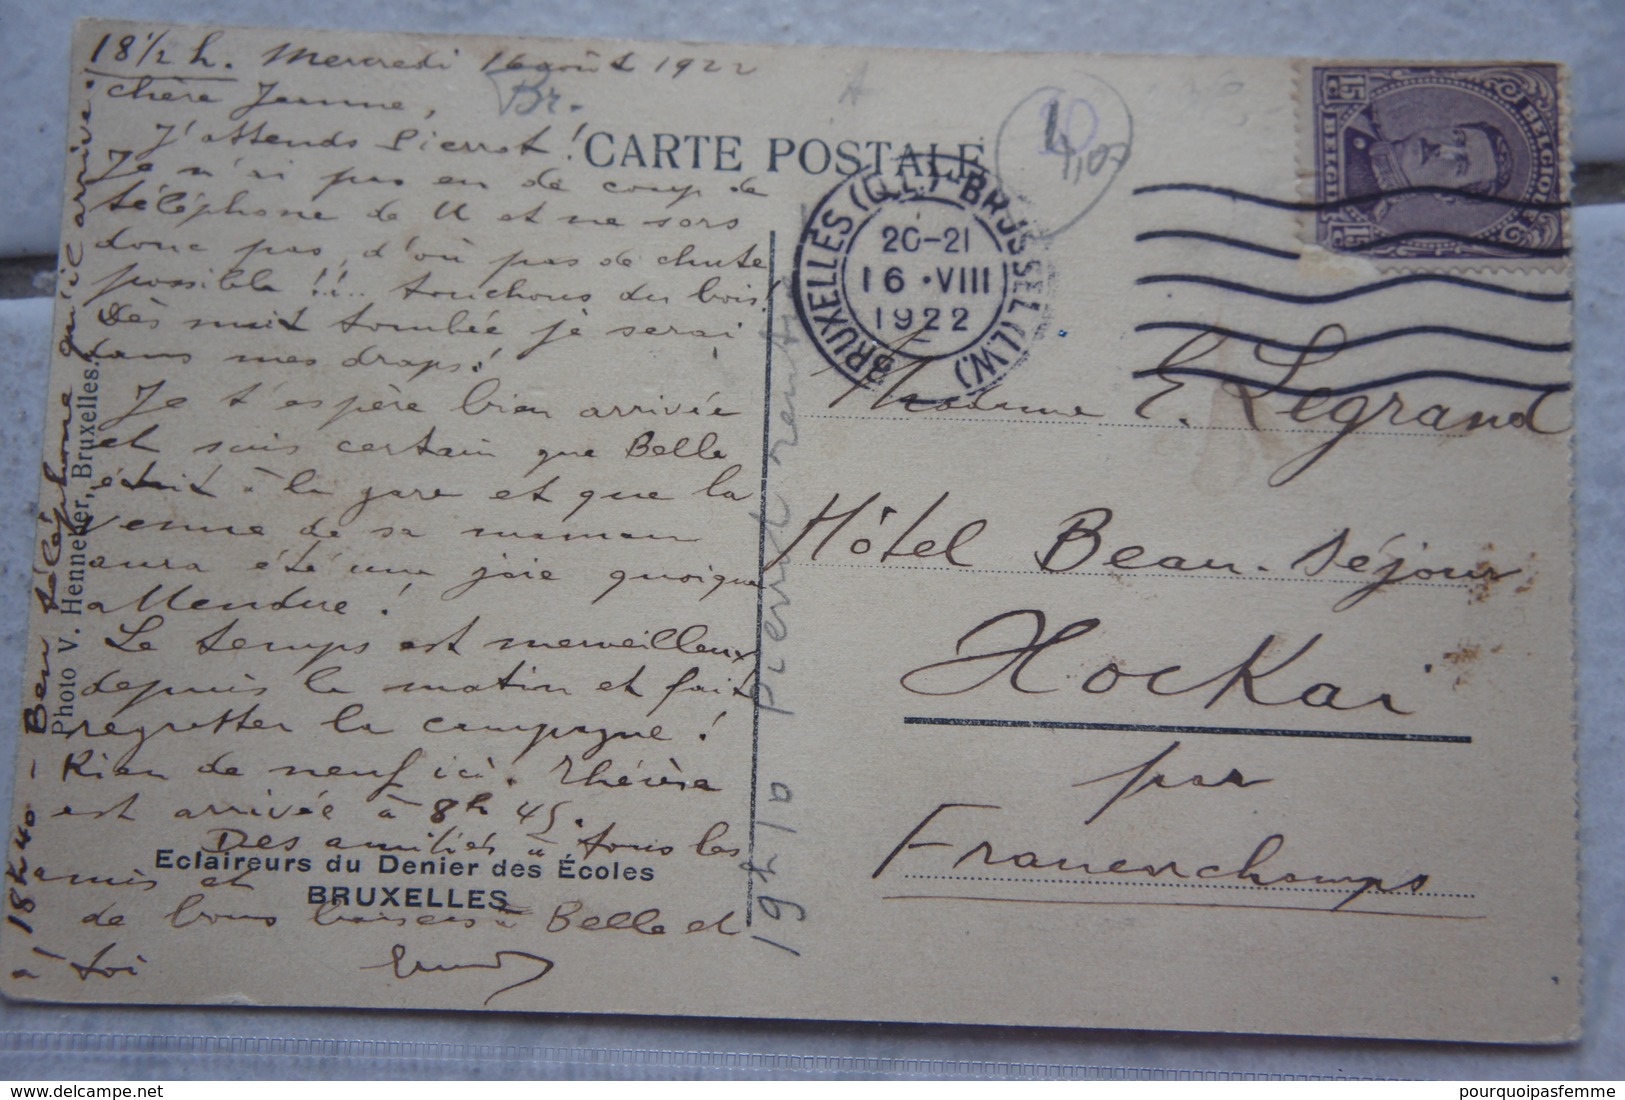 18 1/2 h. Mercredi 16 août 1922
Chère Jeanne,
J'attends Pierrot!
Je n'ai pas eu de coup de
téléphone de U et ne sors
donc pas, d'où pas de chute
possible !!... touchons du bois!
Dès nuit tombée je serai
dans mes draps!
Je t'espère bien arrivée
et suis certain que Belle
était à la gare et que la
venue de sa maman
aura été une joie quoique
attendue!
Le temps est merveilleux
depuis le matin et fait
regretter la campagne!
Rien de neuf ici. Thérèse
est arrivée à 8h 45.
Des amitiés à tous les
amis et
de bons baisers à Belle et
à toi
18h40 - Ben téléphone qu'il arrive.
19h10 Pierrot rentre
Br.
CARTE POSTALE
Photo V. Henneber, Bruxelles.
Eclaireurs du Denier des Écoles
BRUXELLES
BRUXELLES (Q.L.)-BRUSSEL (L.W.)
20-21
16 ·VIII
1922
15 c BELGIQUE
BELGIË 15 c
Madame E. Legrand
Hôtel Beau-Séjour
Hockai
par
Francorchamps
pourquoipasfemme